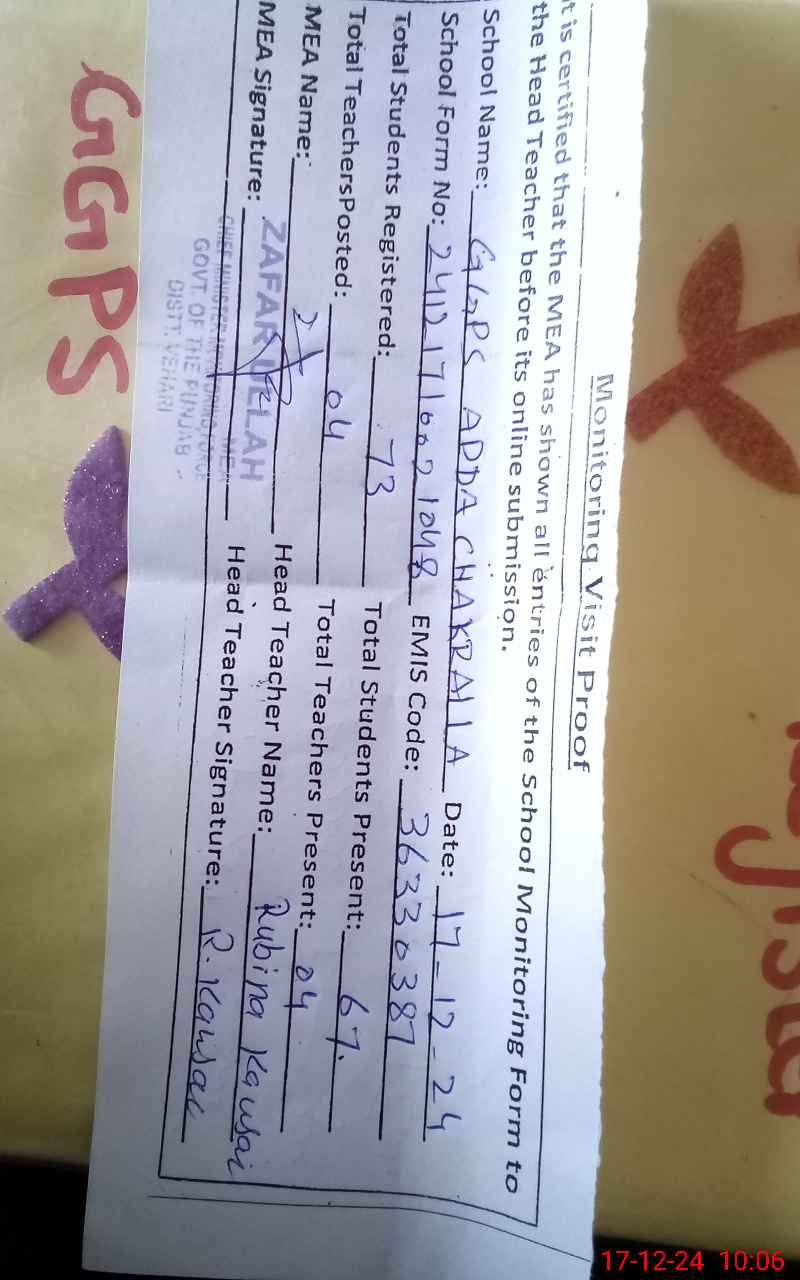 Monitoring Visit Proof
It is certified that the MEA has shown all entries of the School Monitoring Form to
the Head Teacher before its online submission.
School Name: GGPS ADDA CHAKRALLA Date: 17-12-24
School Form No: 241217160021048 EMIS Code: 36330387
Total Students Registered: 73 Total Students Present: 67.
Total TeachersPosted: 04 Total Teachers Present: 04
MEA Name: Head Teacher Name: Rubina Kausar
MEA Signature: Head Teacher Signature: R. Kausar
ZAFAR ULLAH
MEA
CHIEF MINISTER MONITORING FORCE
GOVT. OF THE PUNJAB
DISTT. VEHARI
GGPS
17-12-24 10:06